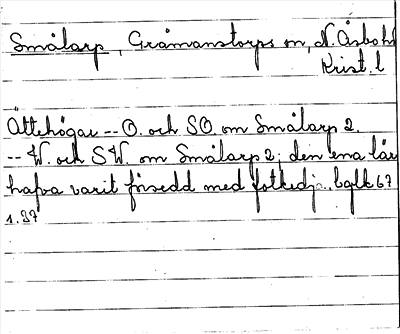 Smålarp, Gråmanstorps sn, N. Åsbo hd
Krist. l
Ättehögar -- O. och SO. om Smålarp 2.
-- W. och SW. om Smålarp 2; den ena lär
hafva varit försedd med fotkedja. bglk 67
1.37